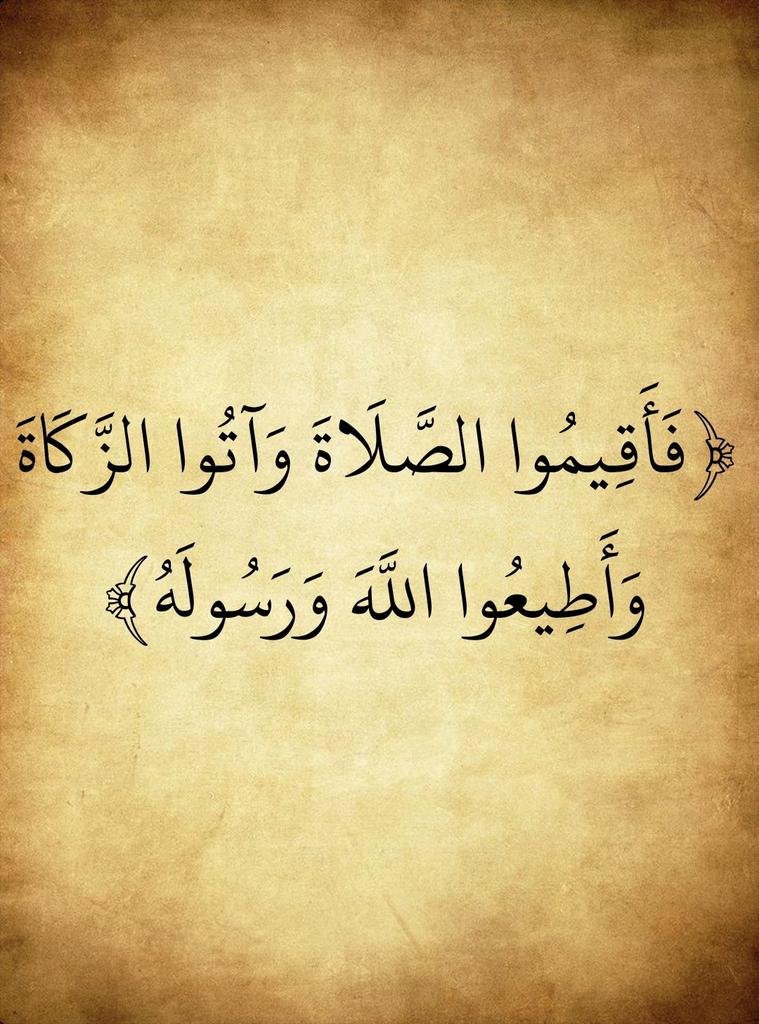 ﴿فَأَقِيمُوا الصَّلَاةَ وَآتُوا الزَّكَاةَ
وَأَطِيعُوا اللَّهَ وَرَسُولَهُ﴾